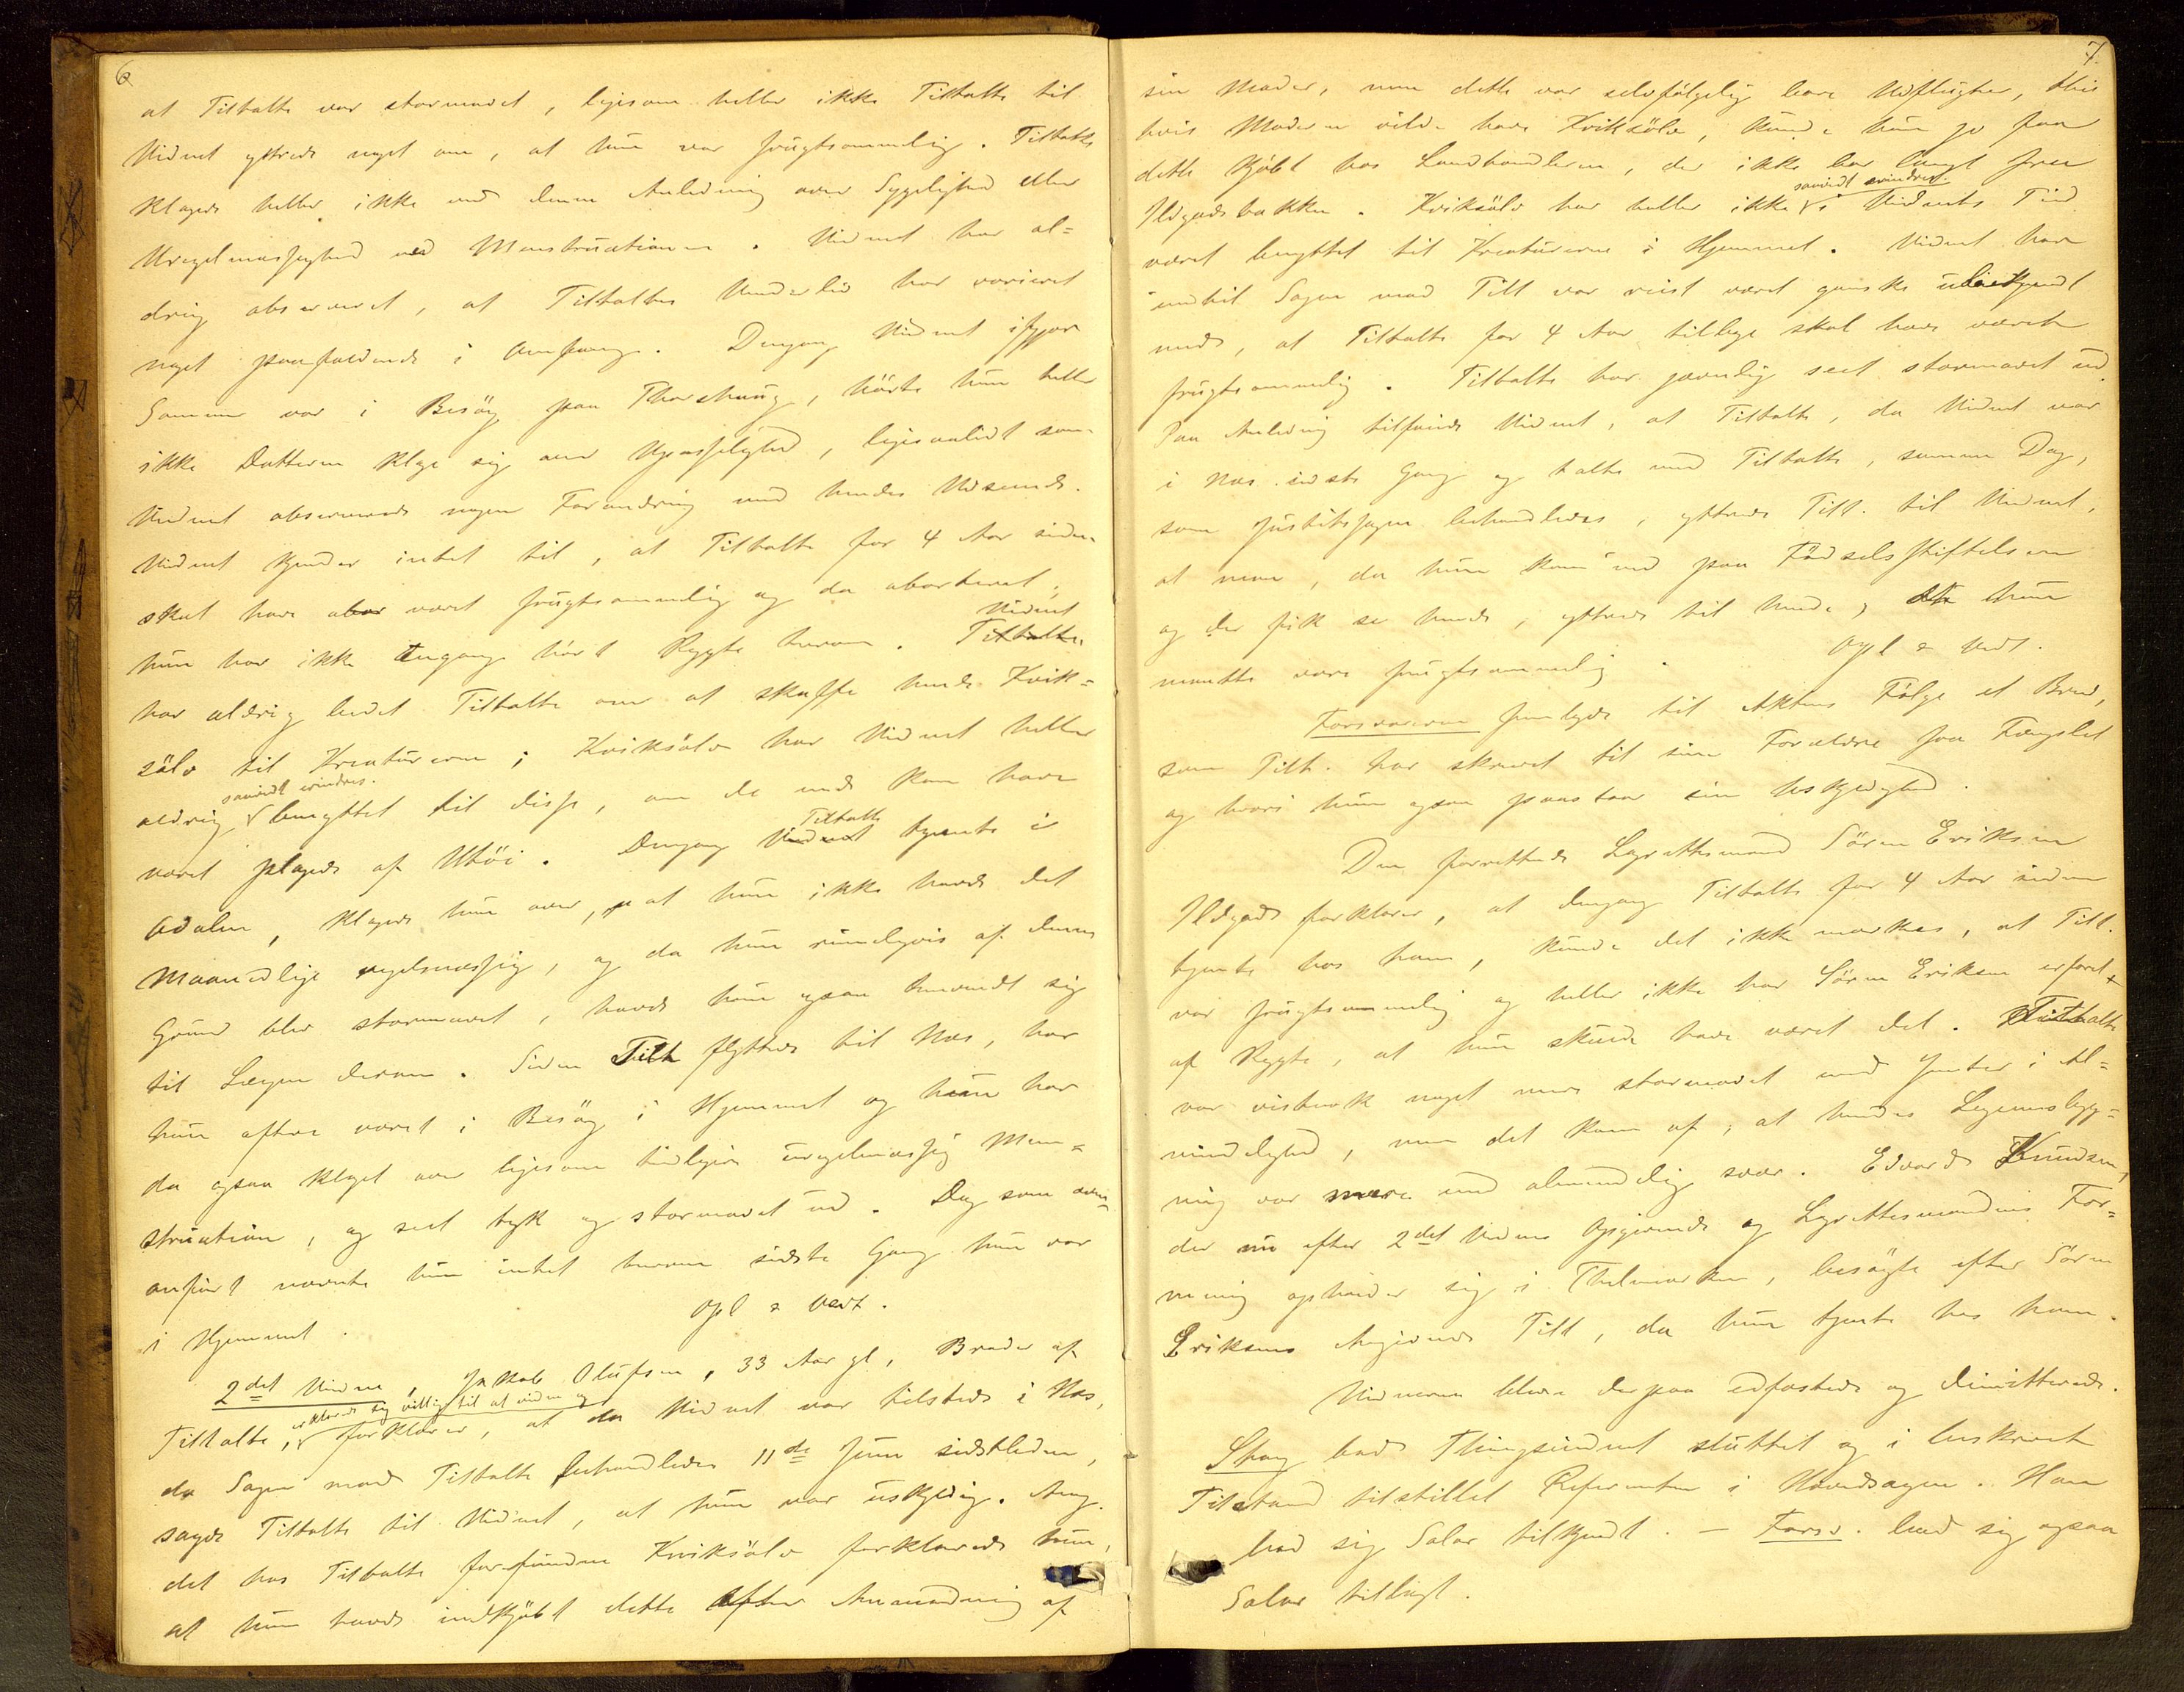 6
at Tiltalte var stormavet, ligesom heller ikke Tiltalte til
Vidnet yttrede noget om, at hun var frugtsommelig. Tiltalte
klagede heller ikke ved denne Anledning over Sygelighed eller
Uregelmæssighed ved Menstruationen. Vidnet har al=
drig observeret, at Tiltaltes Underliv har varieret
noget paafaldende i Omfang. Dengang Vidnet ifjor
Sommer var i Besøg paa Thorshaug, hørte hun heller
ikke Datteren klage sig over Upasselighed, ligesaalidt som
Vidnet observerede nogen Forandring med hendes Udseende.
Vidnet kjender intet til, at Tiltalte for 4 Aar siden
skal have abor været frugtsommelig og da aborteret;
hun har ikke engang hørt Rygte herom. Tiltalte Vidnet
har aldrig bedet Tiltalte om at skaffe hende Kvik=
sølv til Kreaturerne; Kviksølv har Vidnet heller
aldrig saavidt erindres. benyttet til disse, om de end kan have
været plagede af Utøi. Dengang Vidnet Tiltalte tjente i
Aadalen, klagede hun over, at hun ikke havde det
Maanedlige regelmæssig, og da hun rimeligvis af denne
Grund blev stormavet, havde hun ogsaa henvendt sig
til Lægen derom. Siden Tilt flyttede til Næs, har
hun oftere været i Besøg i Hjemmet og hun har
da ogsaa klaget over ligesom tidligere uregelmæssig Men=
struation, og seet tyk og stormavet ud. Dog som oven=
anført nævnte hun intet herom sidste Gang hun var
i Hjemmet. Opl & Vedt.
2det Vidne, Jakob Olufsen, 33 Aar gl, Broder af
Tiltalte, erklærede sig villig til at vidne og forklarer, at da Vidnet var tilstede i Næs,
da Sagen mod Tiltalte behandledes 11te Juni sidstleden,
sagde Tiltalte til Vidnet, at hun var uskyldig. Ang.
det hos Tiltalte forefundne Kviksølv forklarede hun,
at hun havde indkjøbt dette efter Anmodning af
7.
sin Moder, men dette var selvfølgelig bare Udflugter, thi
hvis Moderen vilde have Kviksølv, kunde hun jo faa
dette kjøbt hos Landhandleren, der ikke bor langt fra
Ildjernsbakken. Kviksølv har heller ikke saavidt erindres i Vidnets Tid
været benyttet til Kreaturerne i Hjemmet. Vidnet har
indtil Sagen mod Tilt var reist været ganske ubekjendt
med, at Tiltalte for 4 Aar tilbage skal have været
frugtsommelig. Tiltalte har jævnlig seet stormavet ud.
Paa Anledning tilføiede Vidnet, at Tiltalte, da Vidnet var
i Næs sidste Gang og talte med Tiltalte, samme Dag,
som Justitssagen behandledes, yttrede Tilt. til Vidnet,
at man, da hun kom ind paa Fødselsstiftelsen
og der fik se hende, yttrede til hende, at hun
maatte være frugtsommelig. Opl & Vedt.
Forsvareren fremlagde til Aktens Følge et Brev,
som Tilt. har skrevet til sine Forældre fra Fængslet
og hvori hun ogsaa paastaar sin Uskyldighed.
Den forrettende Lagrettemand Søren Eriksen
Ildjern forklarer, at dengang Tiltalte for 4 Aar siden
tjente hos ham, kunde det ikke mærkes, at Tilt.
var frugtsommelig og heller ikke har Søren Eriksen erfaret
af Rygte, at hun skulde have været det. Tiltalte
var vistnok noget mere stormavet end Jenter i Al=
mindelighed, men det kom af, at hendes Legemsbyg=
ning var mere end almindelig svær. Edvard Knudsen,
der nu efter 2det Vidnes Opgivende og Lagrettemandens For=
mening opholder sig i Thelemarken, besøgte efter Søren
Eriksens Angivende Tilt, da hun tjente hos ham.
Vidnerne bleve derpaa edfæstede og dimitterede.
Stang bad Thingsvidnet sluttet og i beskreven
Tilstand tilstillet Referenten i Hovedsagen. Han
bad sig Salær tilkjendt. — Forsv. bad sig ogsaa
Salær tillagt.